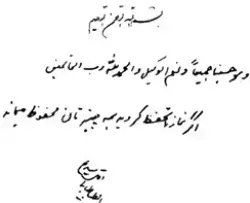 بسم الله الرحمن الرحیم
وهو حسبنا جمیعاً و نعم الوکیل والحمد لله رب العالمین
اگر نماز را تحفظ کردید همه چیزتان محفوظ میماند